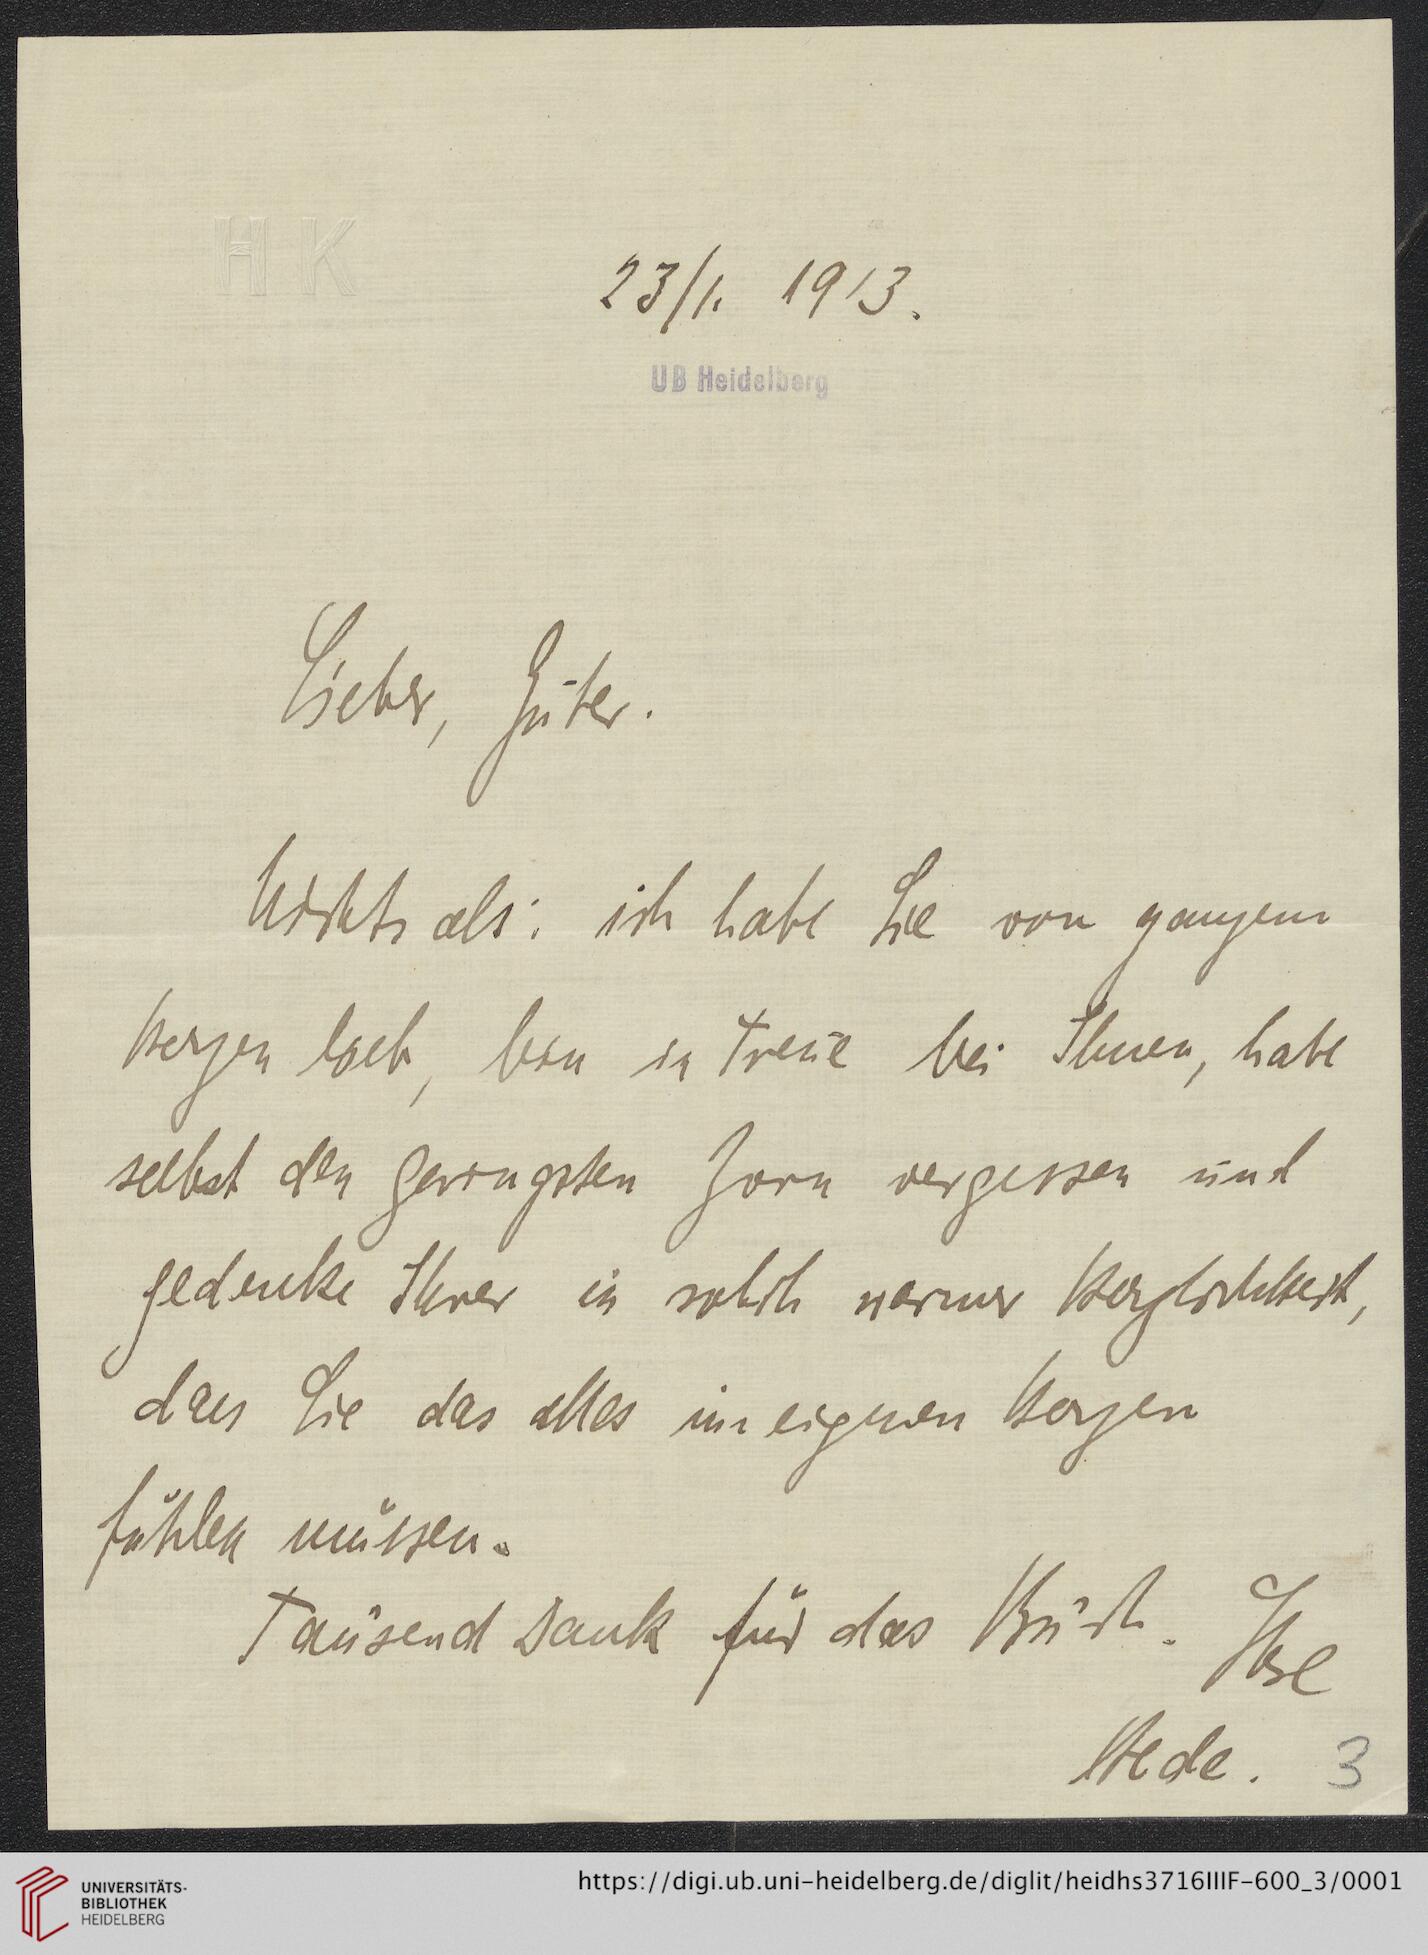 HK
23/1. 1913.
UB Heidelberg
Lieber, Guter.
Nichts als: ich habe Sie von ganzem
Herzen lieb, bin in Treue bei Ihnen, habe
selbst den geringsten Zorn vergessen und
gedenke Ihrer in solch warmer Herzlichkeit,
dass Sie das alles im eignen Herzen
fühlen müssen.
Tausend Dank für das Buch. Ihre
Hede. 3
UNIVERSITÄTS-
BIBLIOTHEK
HEIDELBERG
https://digi.ub.uni-heidelberg.de/diglit/heidhs3716IIIF-600_3/0001